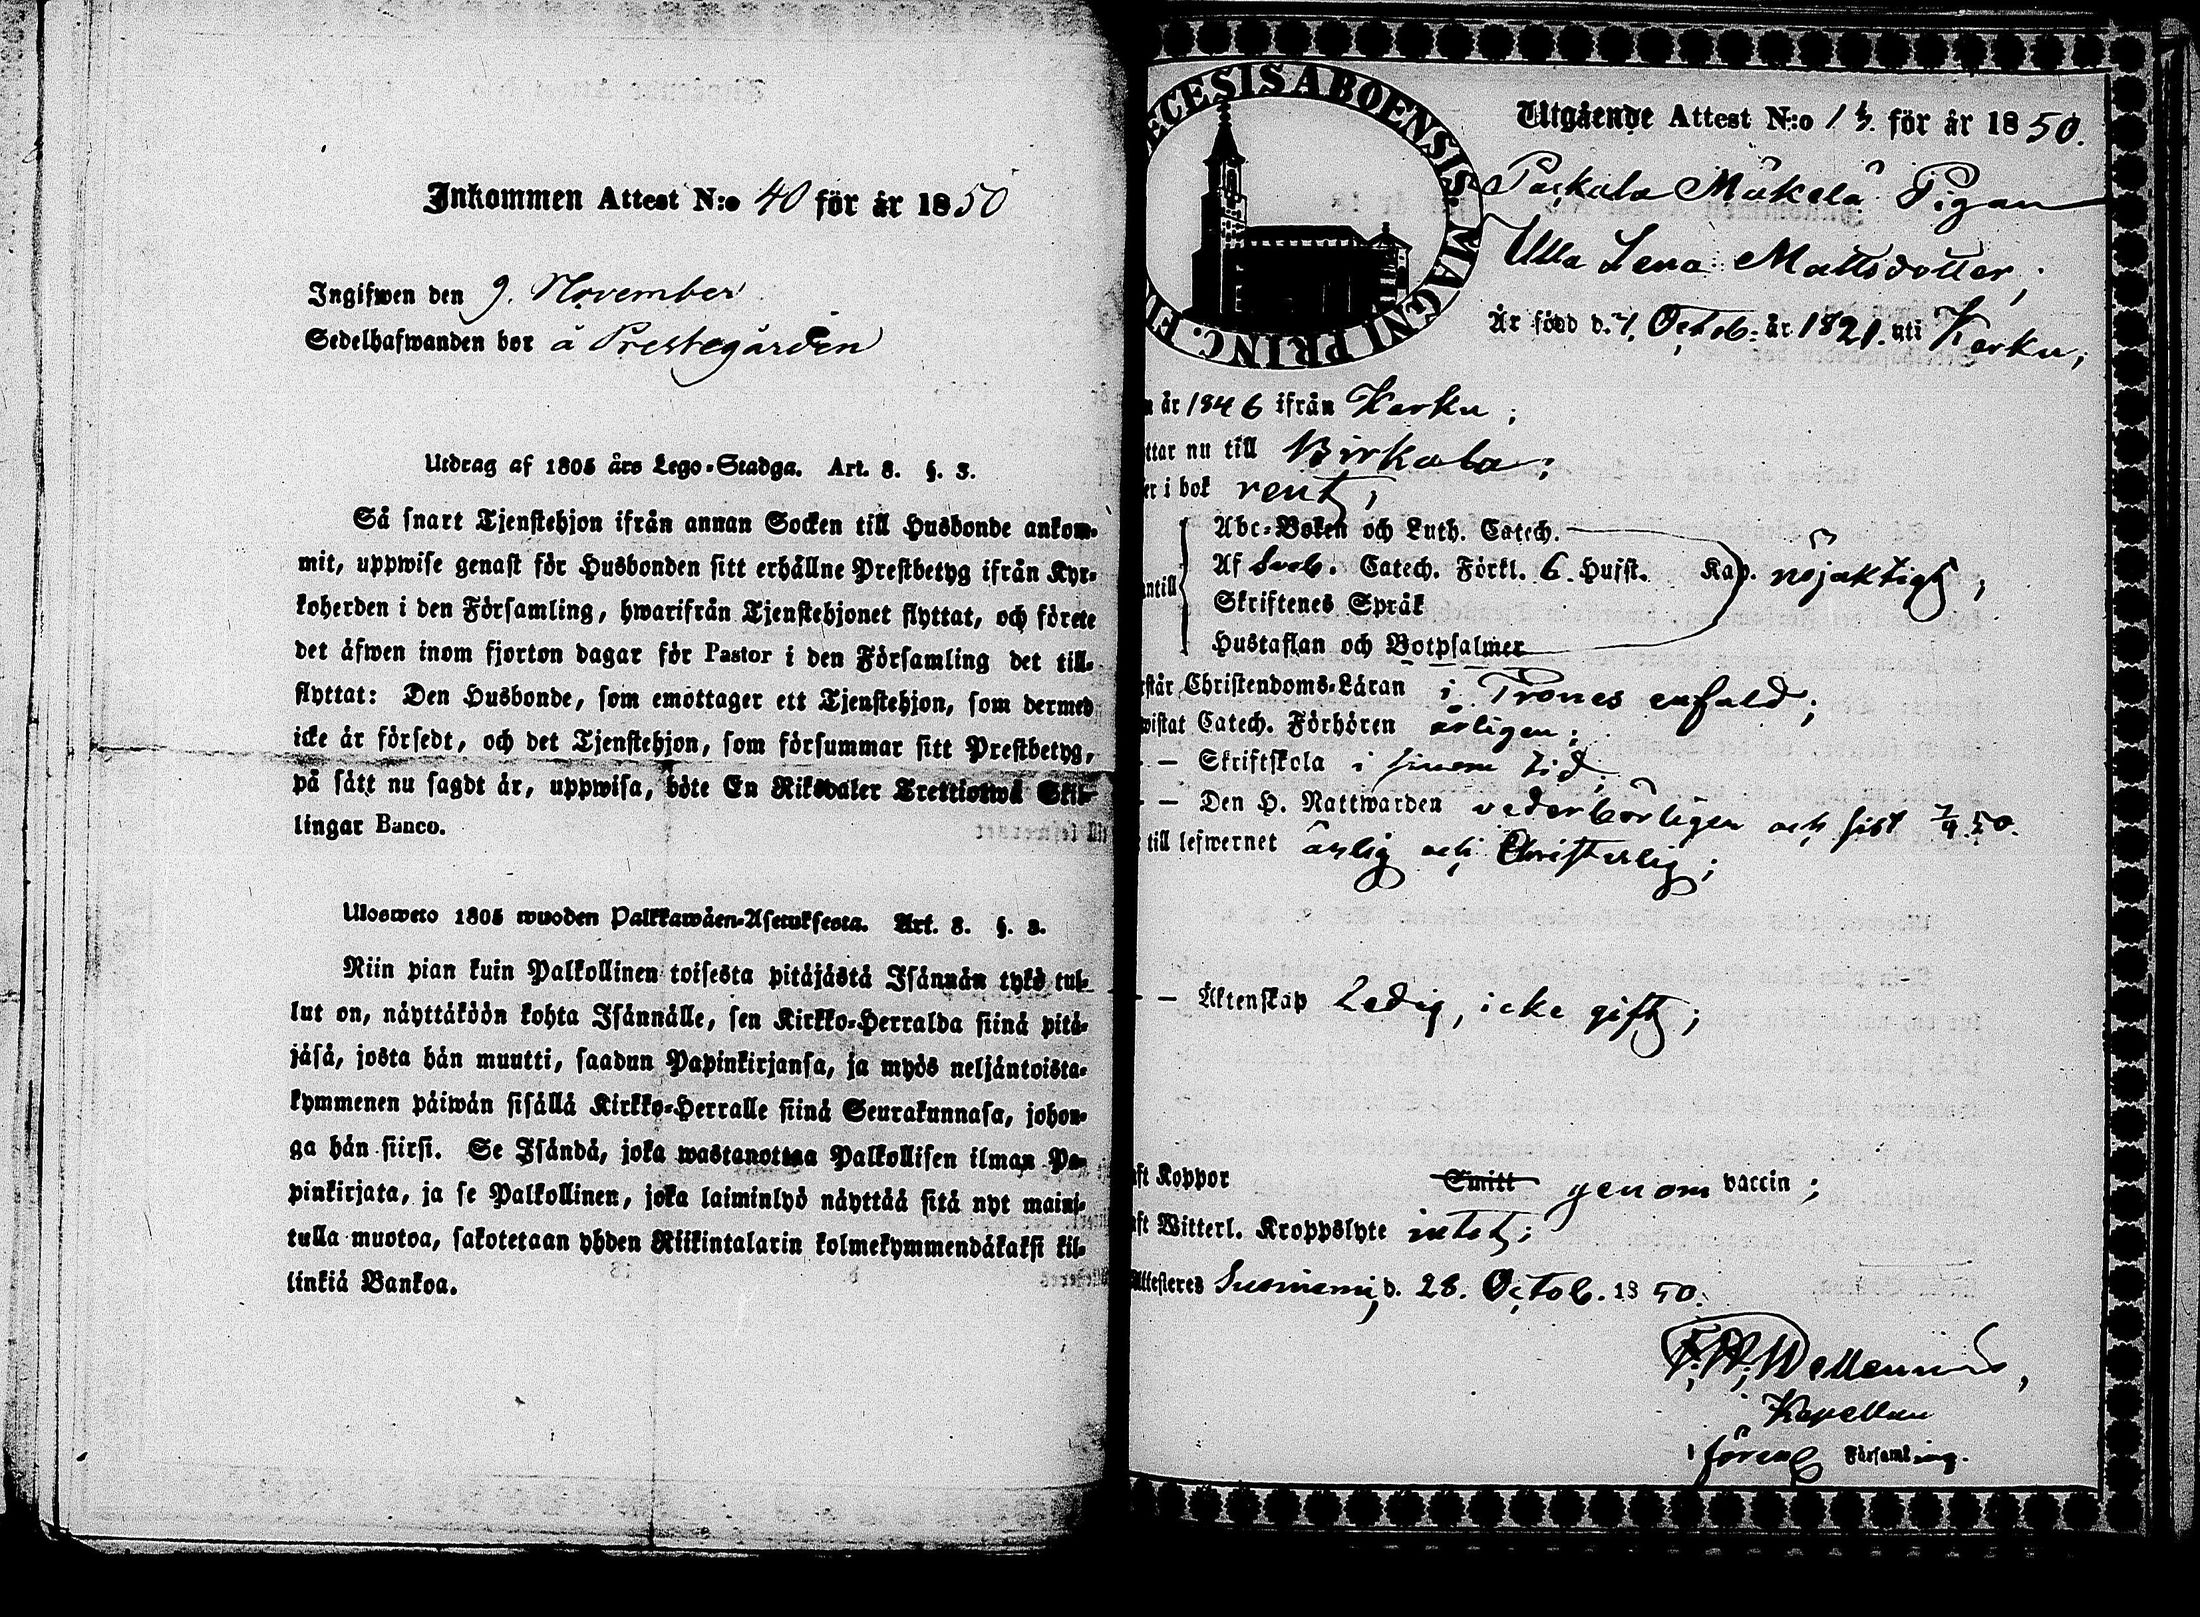 Inkommen Attest N:o 40 för år 1850
Ingifwen den 9. November
Sedelhafwanden bor å Prestegården
Utdrag af 1805 års Lego-Stadga. Art. 8. §. 3.
Så snart Tjenstehjon ifrån annan Socken till Husbonde ankom-
mit, uppwise genast för Husbonden sitt erhållne Prestbetyg ifrån Kyr-
koherden i den Församling, hwarifrån Tjenstehjonet flyttat, och förete
det äfwen inom fjorton dagar för Pastor i den Församling det till-
flyttat: Den Husbonde, som emottager ett Tjenstehjon, som dermed
icke är försedt, och det Tjenstehjon, som försummar sitt Prestbetyg,
på sätt nu sagdt är, uppwisa, böte En Riksdaler Trettiotwå Skil-
lingar Banco.
Ulosweto 1805 wuoden Palkkawäen-Asetuksesta. Art. 8. §. 3.
Niin pian kuin Palkollinen toisesta pitäjästä Isännän tykö tul-
lut on, näyttäköön kohta Isännälle, sen Kirkko-Herralda siinä pitä-
jäsä, josta hän muutti, saadun Papinkirjansa, ja myös neljäntoista-
kymmenen päiwän sisällä Kirkko-Herralle siinä Seurakunnasa, johon-
ga hän siirsi. Se Isändä, joka wastanottaa Palkollisen ilman Pa-
pinkirjata, ja se Palkollinen, joka laiminlyö näyttää sitä nyt maini-
tulla muotoa, sakotetaan yhden Riikintalarin kolmekymmendäkaksi kil-
linkiä Bankoa.
ECESIS ABOENSIS. MAGNI PRINC. FI
Utgående Attest N:o 13. för år 1850.
Paskala Mäkelä Pigan
Ulla Lena Mattsdotter,
Är född d. 4. Octob. år 1821. uti Karku;
n år 1846 ifrån Karku;
ttar nu till Birkala;
er i bok rent;
Abc-Boken och Luth. Catech.
ntill Af Sveb. Catech. Förkl. 6. Hufst. Kap. nöjaktigt;
Skriftenes Språk
Hustaflan och Botpsalmer
står Christendoms-Läran i Trones enfald;
wistat Catech. Förhören årligen;
- - Skriftskola i sinom tid;
- - Den H. Nattwarden vederbörligen och sist 7/9 50.
till lefwernet ärlig och Christerlig;
- - Äktenskap Ledig, icke gift;
ft Koppor Smitt genom vaccin;
ft Witterl. Kroppslyte intet;
Attesteres Suoniemi, d. 28. Octob. 1850.
Kapellan
i förena Församling.